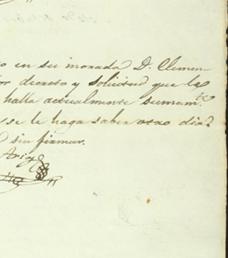 o en su morada D. Clemen
or decreto y solicitud que la
halla actualmente sumam.te
se le haga saber otro dia
sin firmar.